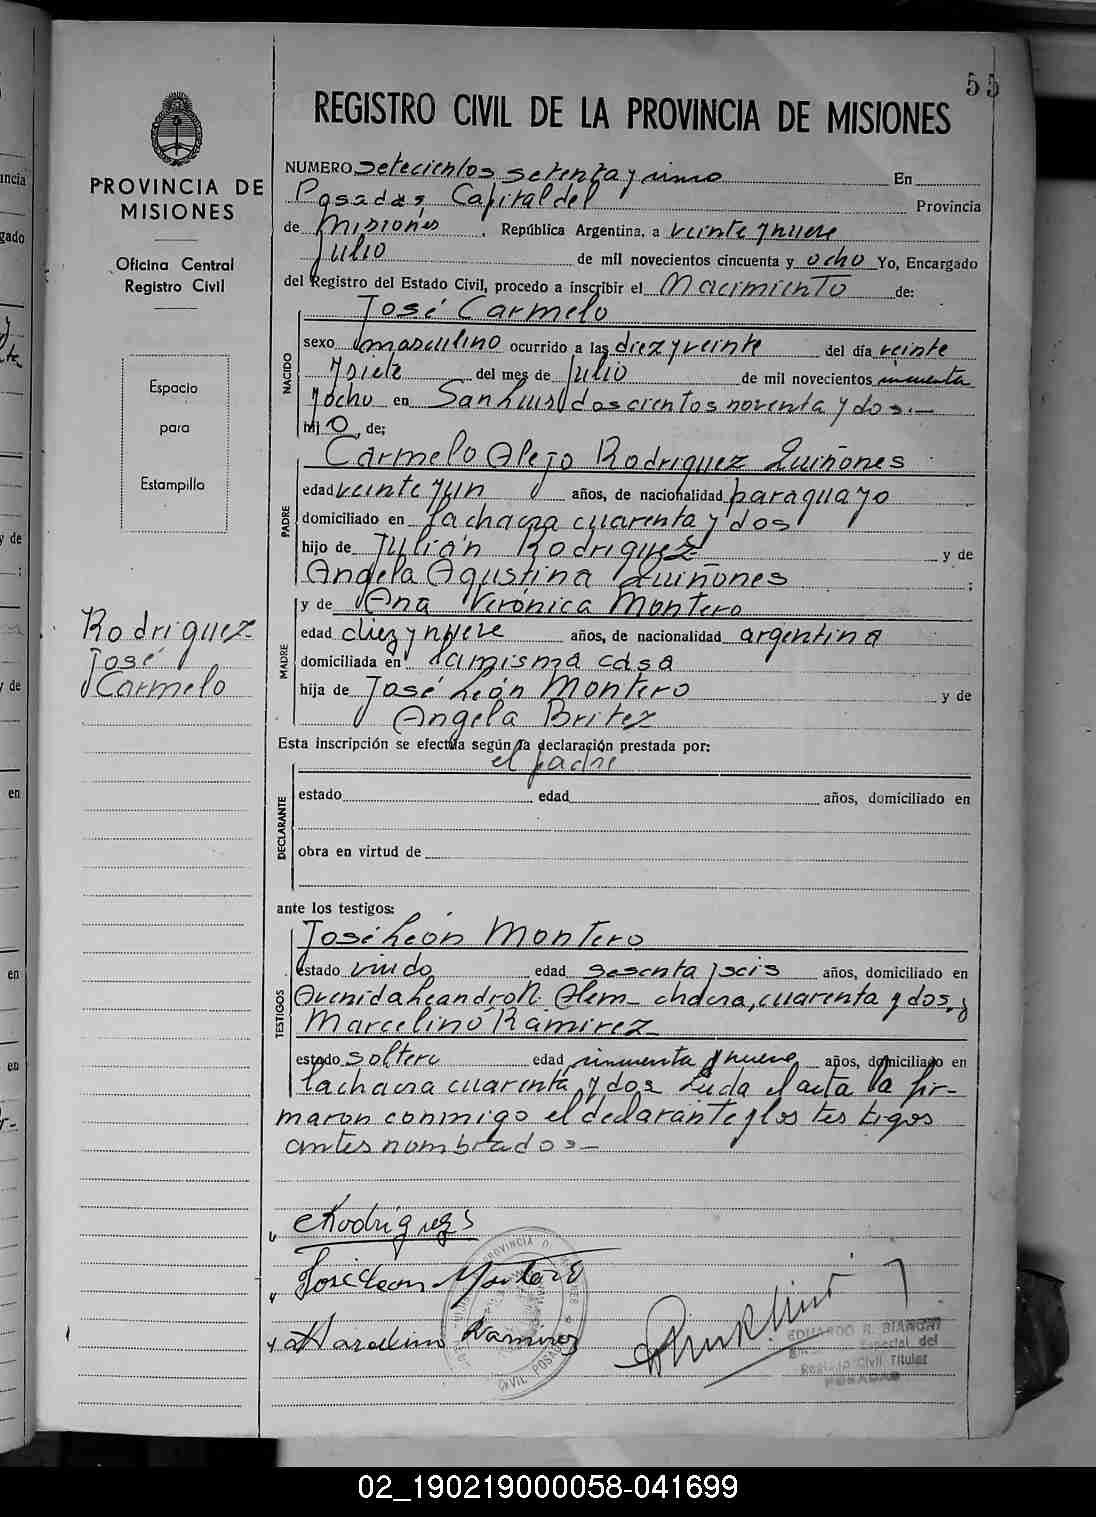 55
REGISTRO CIVIL DE LA PROVINCIA DE MISIONES
PROVINCIA DE
MISIONES
Oficina Central
Registro Civil
Espacio
para
Estampilla
Rodriguez
José
Carmelo
NUMERO setecientos setenta y uno En
Posadas, Capital del Provincia
de Misiones, República Argentina, a veinte y nueve
Julio de mil novecientos cincuenta y ocho Yo, Encargado
del Registro del Estado Civil, procedo a inscribir el Nacimiento de:
NACIDO
José Carmelo
sexo masculino ocurrido a las diez y veinte del día veinte
y siete del mes de Julio de mil novecientos cincuenta
y ocho en San Luis doscientos noventa y dos.—
hijo, de;
PADRE
Carmelo Alejo Rodriguez Quiñones
edad veinte y un años, de nacionalidad paraguayo
domiciliado en la chacra cuarenta y dos
hijo de Julián Rodriguez y de
Angela Agustina Quiñones ;
MADRE
y de Ana Verónica Montero
edad diez y nueve años, de nacionalidad argentina
domiciliada en la misma casa
hija de José León Montero y de
Angela Britez
Esta inscripción se efectúa según la declaración prestada por:
el padre
DECLARANTE
estado edad años, domiciliado en
obra en virtud de
ante los testigos:
TESTIGOS
José León Montero
estado viudo edad sesenta y seis años, domiciliado en
Avenida Leandro N. Alem - chacra, cuarenta y dos, y
Marcelino Ramirez
estado soltero edad cincuenta y nueve años, domiciliado en
la chacra cuarenta y dos Leida el acta la fir-
maron conmigo el declarante y los testigos
antes nombrados—
CRodriguezs
José Leon Montero
Marcelino Ramirez
EDUARDO R. BIANCHI
Especial del
Registro Civil Titular
POSADAS
02_190219000058-041699